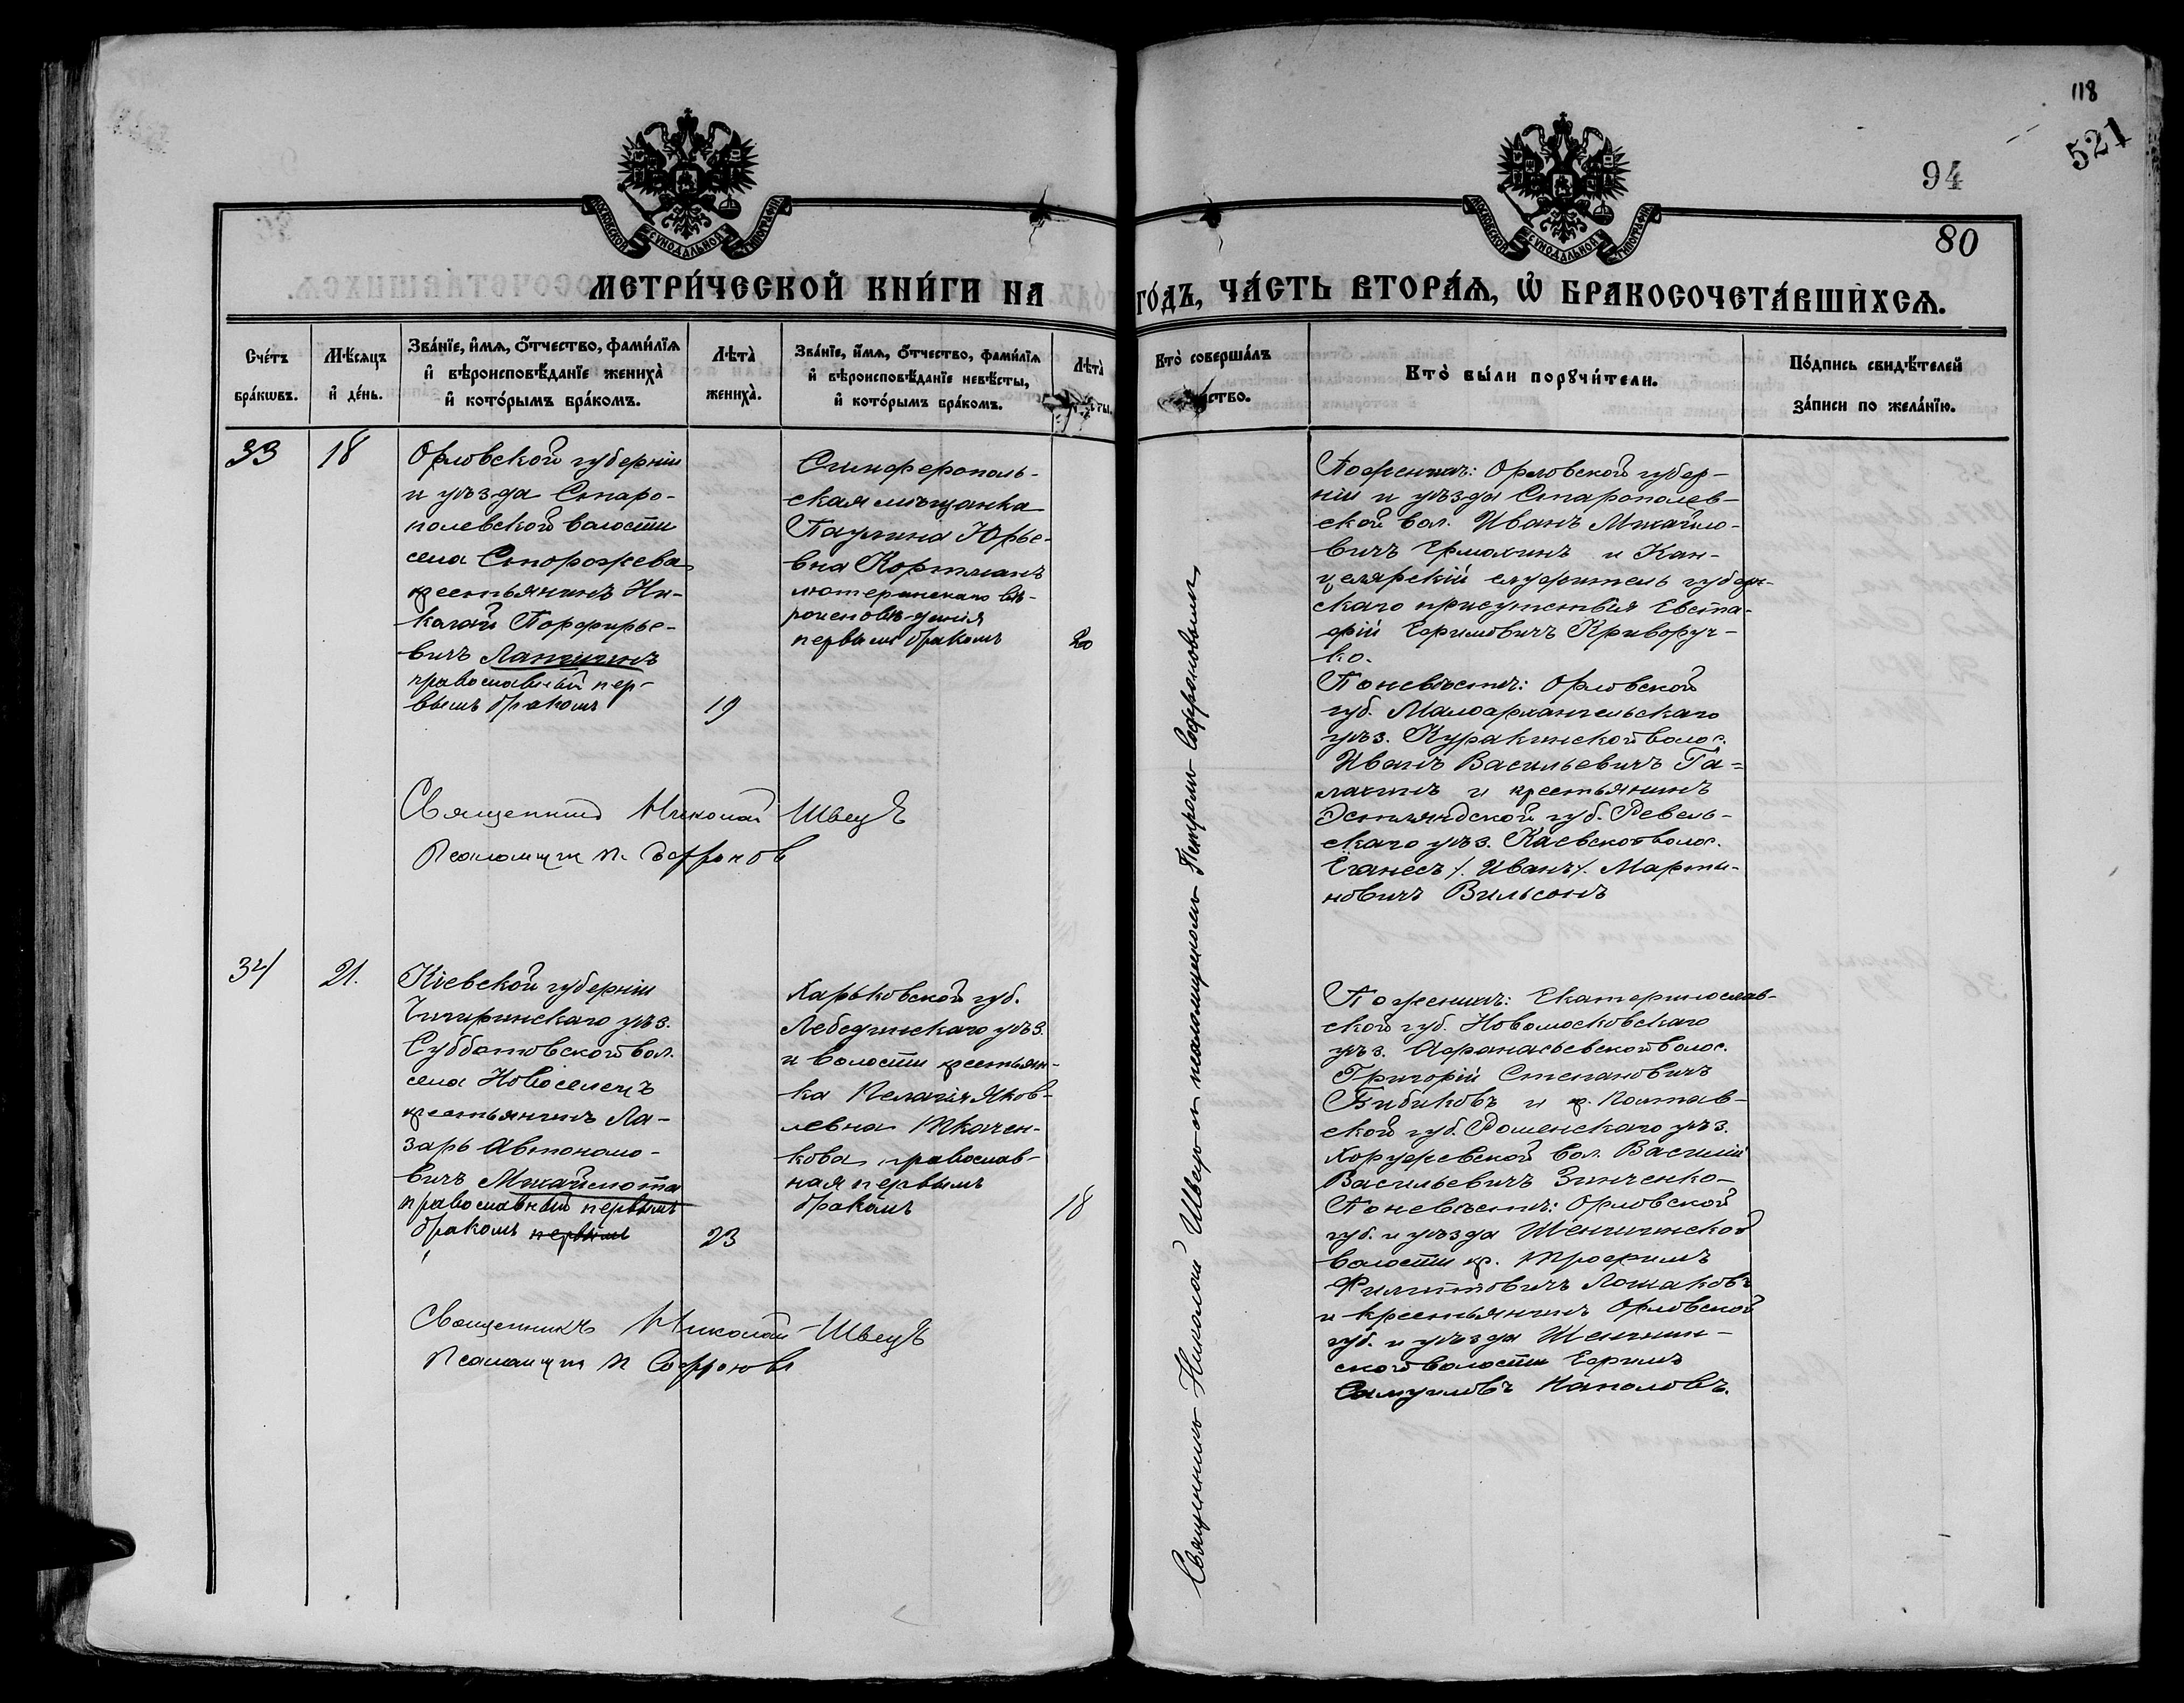 118
521
94
80
МОСКОВСКОЙ СУНОДАЛЬНОЙ ТИПОГРАФІИ
МОСКОВСКОЙ СУНОДАЛЬНОЙ ТИПОГРАФІИ
МЕТРИ́ЧЕСКОЙ КНИ́ГИ НА ГО́ДЪ, ЧА́СТЬ ВТОРА́Ѧ, Ѡ҆ БРАКОСОЧЕТА́ВШИХСѦ.
Сче́тъ
бра́кѡвъ.
Мѣ́сяцъ
и҆ де́нь.
Зва́нїе, и҆́мѧ, ѻ҆́тчество, фами́лїѧ
и҆ вѣроисповѣ́данїе жениха̀
и҆ кото́рымъ бра́комъ.
Лѣта̀
жениха̀.
Зва́нїе, и҆́мѧ, ѻ҆́тчество, фами́лїѧ
и҆ вѣроисповѣ́данїе невѣ́сты,
и҆ кото́рымъ бра́комъ.
Лѣта̀
Кто̀ соверша́лъ
ство.
Кто̀ бы́ли порꙋчи́тели.
По́дпись свидѣ́телей
за́писи по жела́нїю.
33
18
Орловской губерніи
и уѣзда Старо-
полевской волости
села Сторожева
крестьянинъ Ни-
колай Порфирье-
вичъ Лапигинъ
православный пер-
вымъ бракомъ
19
Симферополь-
ская мѣщанка
Паулина Юрье-
вна Кортманъ
лютеранскаго вѣ-
роисповѣданія
первымъ бракомъ
20
Священникъ Николай Швецъ
Псаломщик П. Софронов
По женихѣ: Орловской губер-
ніи и уѣзда Старополев-
ской вол. Иванъ Михайло-
вичъ Ермохинъ и Кан-
целярскій служитель губерн-
скаго присутствія Евста-
фій Ефимовичъ Криворуч-
ко.
По невѣстѣ: Орловской
губ. Малоархангельскаго
уѣз. Куракинской волос.
Иванъ Васильевичъ Га-
лахинъ и крестьянинъ
Эстляндской губ. Ревель-
скаго уѣз. Каевской волос.
Еганесъ /. Иванъ /. Марты-
новичъ Вильсонъ
Священникъ Николай Швецъ съ псаломщикомъ Петромъ Софроновымъ
34
21.
Кіевской губерніи
Чигиринскаго уѣз.
Субботовской вол.
села Новоселецъ
крестьянинъ Ла-
зарь Автономо-
вичъ Михайлюта
православный первымъ
бракомъ первымъ
23
Харьковской губ.
Лебединскаго уѣз.
и волости крестьян-
ка Пелагія Яков-
левна Ткачен-
кова православ-
ная первымъ
бракомъ
18
Священникъ Николай Швецъ
Псаломщик П Софронов
По женихѣ: Екатеринослав-
ской губ. Новомосковскаго
уѣз. Афанасьевской волос.
Григорій Степановичъ
Бибиковъ и кр. Полтав-
ской губ. Роменскаго уѣз.
Хоружевской вол. Василій
Васильевичъ Зинченко
По невѣстѣ: Орловской
губ. и уѣзда Шенгинской
волости кр. Трофимъ
Филипповичъ Лошаковъ
и крестьянинъ Орловской
губ. и уѣзда Шенгин-
ской волости Ефимъ
Самуиловъ Наполовъ.